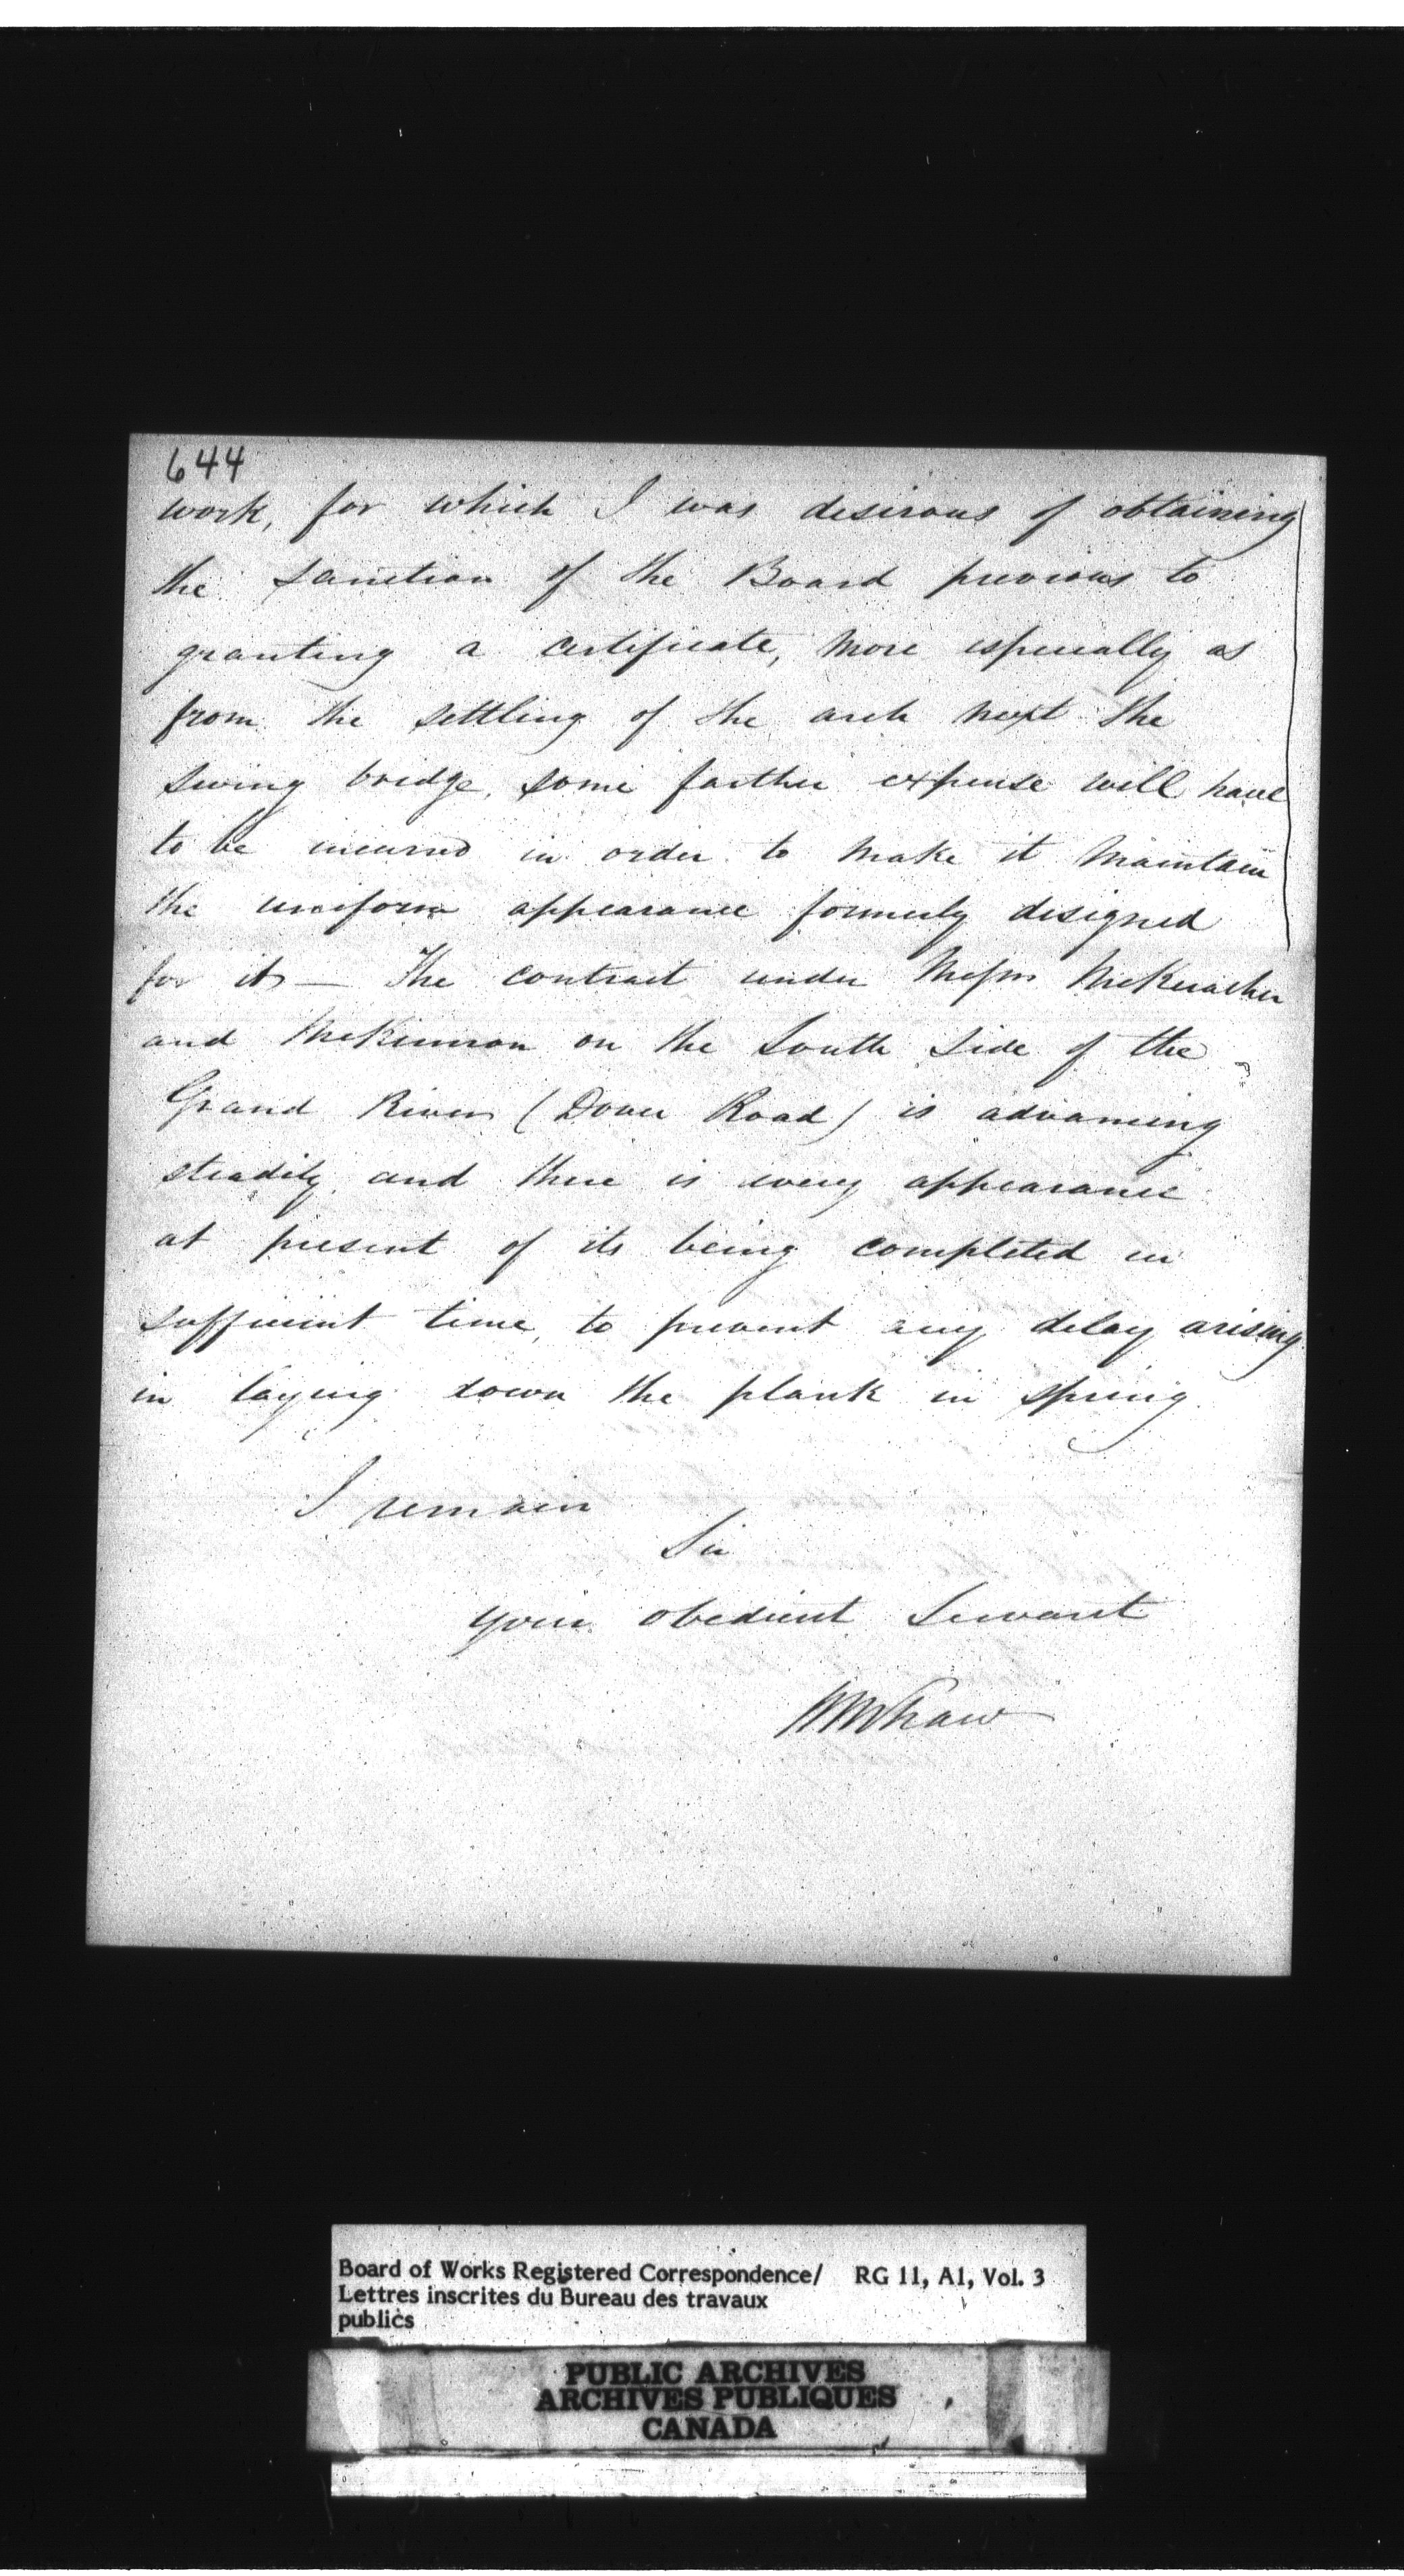 644
work, for which I was desirous of obtaining
the sanction of the Board previous to
granting a certificate, more especially as
from the settling of the arch next the
swing bridge, some farther expense will have
to be incurred in order to make it maintain
the uniform appearance formerly designed
for it — The contract under Messrs McKerracher
and McKinnon on the South side of the
Grand River (Dover Road) is advancing
steadily and there is every appearance
at present of its being completed in
sufficient time, to prevent any delay arising
in laying down the plank in spring.
I remain
Sir
your obedient Servant
WM Shaw
Board of Works Registered Correspondence/ RG 11, A1, Vol. 3
Lettres inscrites du Bureau des travaux
publics
PUBLIC ARCHIVES
ARCHIVES PUBLIQUES
CANADA